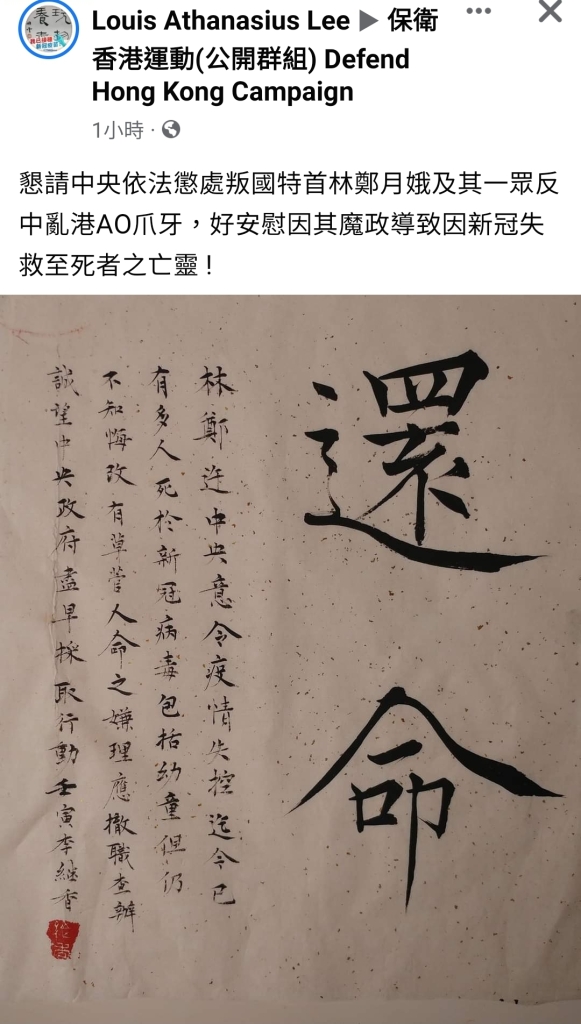 Louis Athanasius Lee ▶ 保衛
香港運動(公開群組) Defend
Hong Kong Campaign
1小時 ·
懇請中央依法懲處叛國特首林鄭月娥及其一眾反
中亂港AO爪牙，好安慰因其魔政導致因新冠失
救至死者之亡靈！
還命
林鄭迕中央意令疫情失控迄今已
有多人死於新冠病毒包括幼童但仍
不知悔改有草菅人命之嫌理應撤職查辦
誠望中央政府盡早採取行動壬寅李継